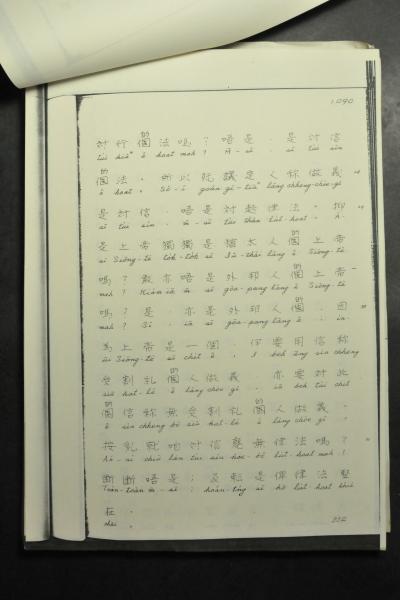 1090
的
対行個法嗎？唔是，是対信
tùi kiâⁿ ê hoat mah? M̄-sī, sī tùi sìn
的
個法。所以阮議是人称做義
ê hoat. Só-í goán gī lâng chheng-chòe-gī
是対信，唔是対趁律法。抑
sī tùi sìn, m̄-sī tùi thàn lu̍t-hoat. A̍
的
是上帝獨獨是猶太人個上帝
sī Siōng-tè to̍k-to̍k sī Iû-thài lâng ê Siōng-tè
的
嗎？敢亦唔是外邦人個上帝
mah? Kám iā m̄ sī gōa-pang lâng ê Siōng-tè
的
嗎？是，亦是外邦人個。因
mah? Sī, iā sī gōa-pang lâng ê; in-
為上帝是一個，伊要用信称
ūi Siōng-tè sī chi̍t ê, I beh ēng sìn chheng
的
受割礼個人做義，亦要対此
siū kat-lé ê lâng chòe gī, iā beh tùi chit
的
個信称無受割礼個人做義。
ê sìn chheng bô siū kat-lé ê lâng chòe gī.
按呢就咱対信廢無律法嗎？
Án-ni chiū lán tùi sìn hòe-bô lu̍t-hoat mah?
斷斷唔是；反転是俾律法堅
Toàn-toàn m̄-sī; hoán-tńg sī hō͘ lu̍t-hoat khiā
在。
chāi.